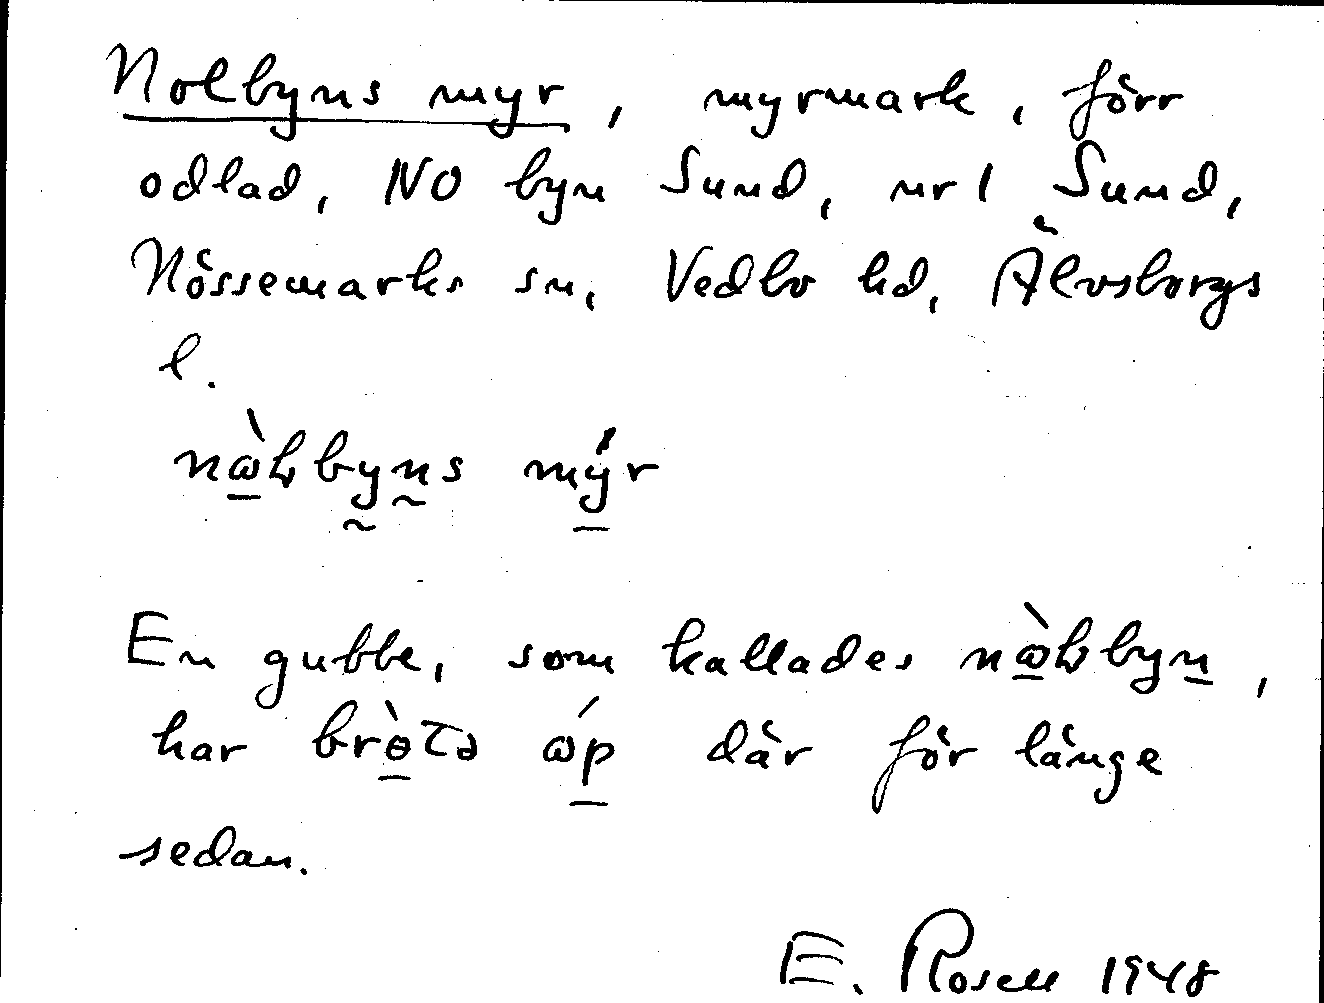 Nolbyns myr, myrmark, förr
odlad, NO byn Sund, nr 1 Sund,
Nössemarks sn, Vedbo hd, Älvsborgs
l.
En gubbe, som kallades
har där för länge
sedan.
E. Rosell 1948